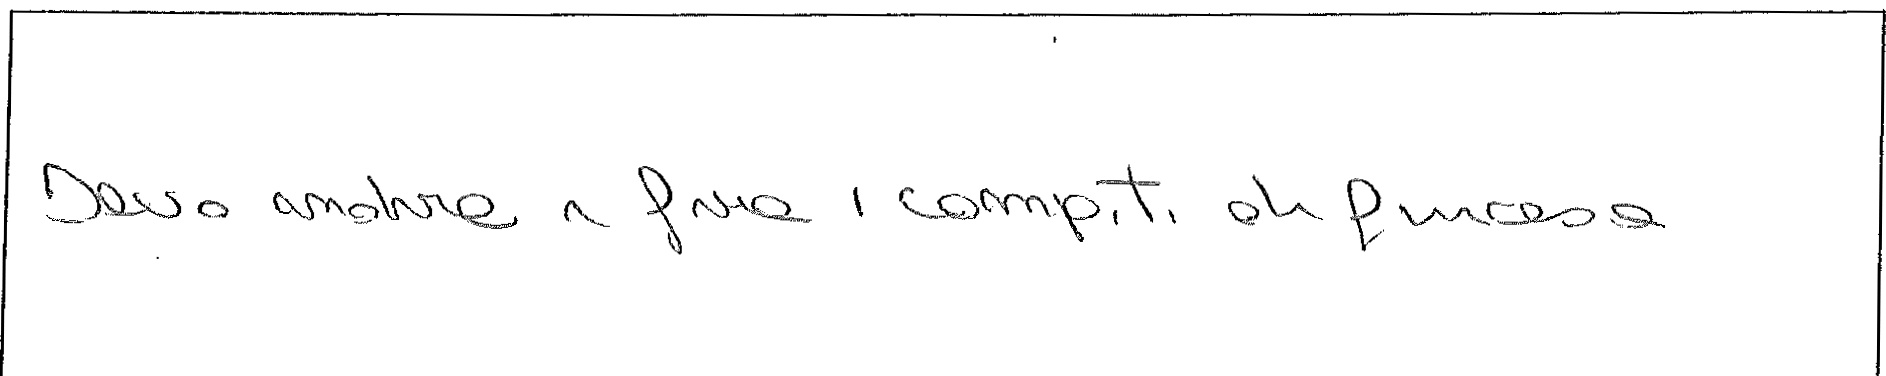 Devo andare a fare i compiti di francese